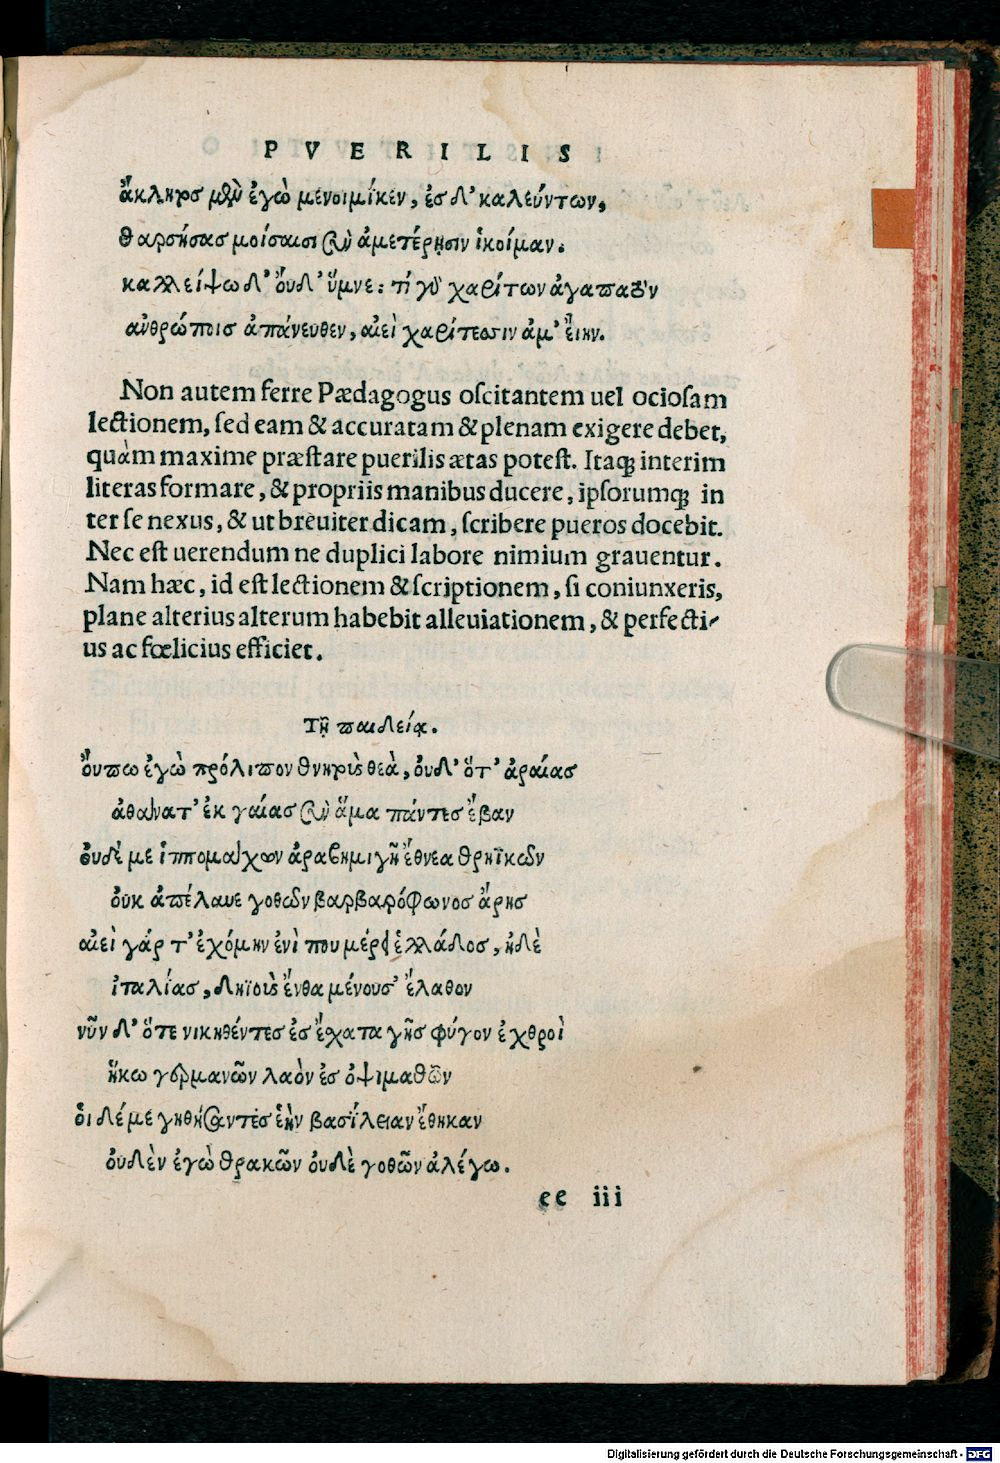 PVERILIS
ἄκλητος μὲν ἐγὼ μένοιμί κεν, ἐς δ' καλεύντων,
θαρσήσας μοίσαισι σὺν ἁμετέρῃσιν ἱκοίμαν.
καλλείψω δ' οὐδ' ὔμμε: τί γὸ χαρίτων ἀγαπατὸν
ἀνθρώποις ἀπάνευθεν, αἰεὶ χαρίτεσσιν ἁμ' εἴην.
Non autem ferre Pædagogus oſcitantem uel ocioſam
lectionem, ſed eam & accuratam & plenam exigere debet,
quàm maxime præſtare puerilis ætas poteſt. Itaq; interim
literas formare, & propriis manibus ducere, ipſorumq; in
ter ſe nexus, & ut breuiter dicam, ſcribere pueros docebit.
Nec eſt uerendum ne duplici labore nimium grauentur.
Nam hæc, id eſt lectionem & ſcriptionem, ſi coniunxeris,
plane alterius alterum habebit alleuiationem, & perfecti-
us ac fœlicius efficiet.
Τῇ παιδείᾳ.
οὔπω ἐγὼ πρόλιπον θνητοὺς θεὰ, οὐδ' ὅτ' ἀραίας
ἀθάνατ' ἐκ γαίας σὺν ἅμα πάντες ἔβαν
οὐδέ με ἱππομάχων ἀραβημιγῆ ἔθνεα θρηίκων
οὐκ ἀπέλαυε γοθῶν βαρβαρόφωνος ἄρης
αἰεὶ γάρ τ' ἐχόμην ἐνὶ που μέρει ἑλλάδος, ἠδὲ
ἰταλίας, δηίους ἔνθα μένουσ' ἔλαθον
νῦν δ' ὅτε νικηθέντες ἐς ἔσχατα γῆς φύγον ἐχθροὶ
ἥκω γερμανῶν λαὸν ἐς ὀψιμαθῶν
οἱ δέ με γηθήσαντες ἑὴν βασίλειαν ἔθηκαν
οὐδὲν ἐγὼ θρακῶν οὐδὲ γοθῶν ἀλέγω.
ee iii
Digitalisierung gefördert durch die Deutsche Forschungsgemeinschaft - DFG